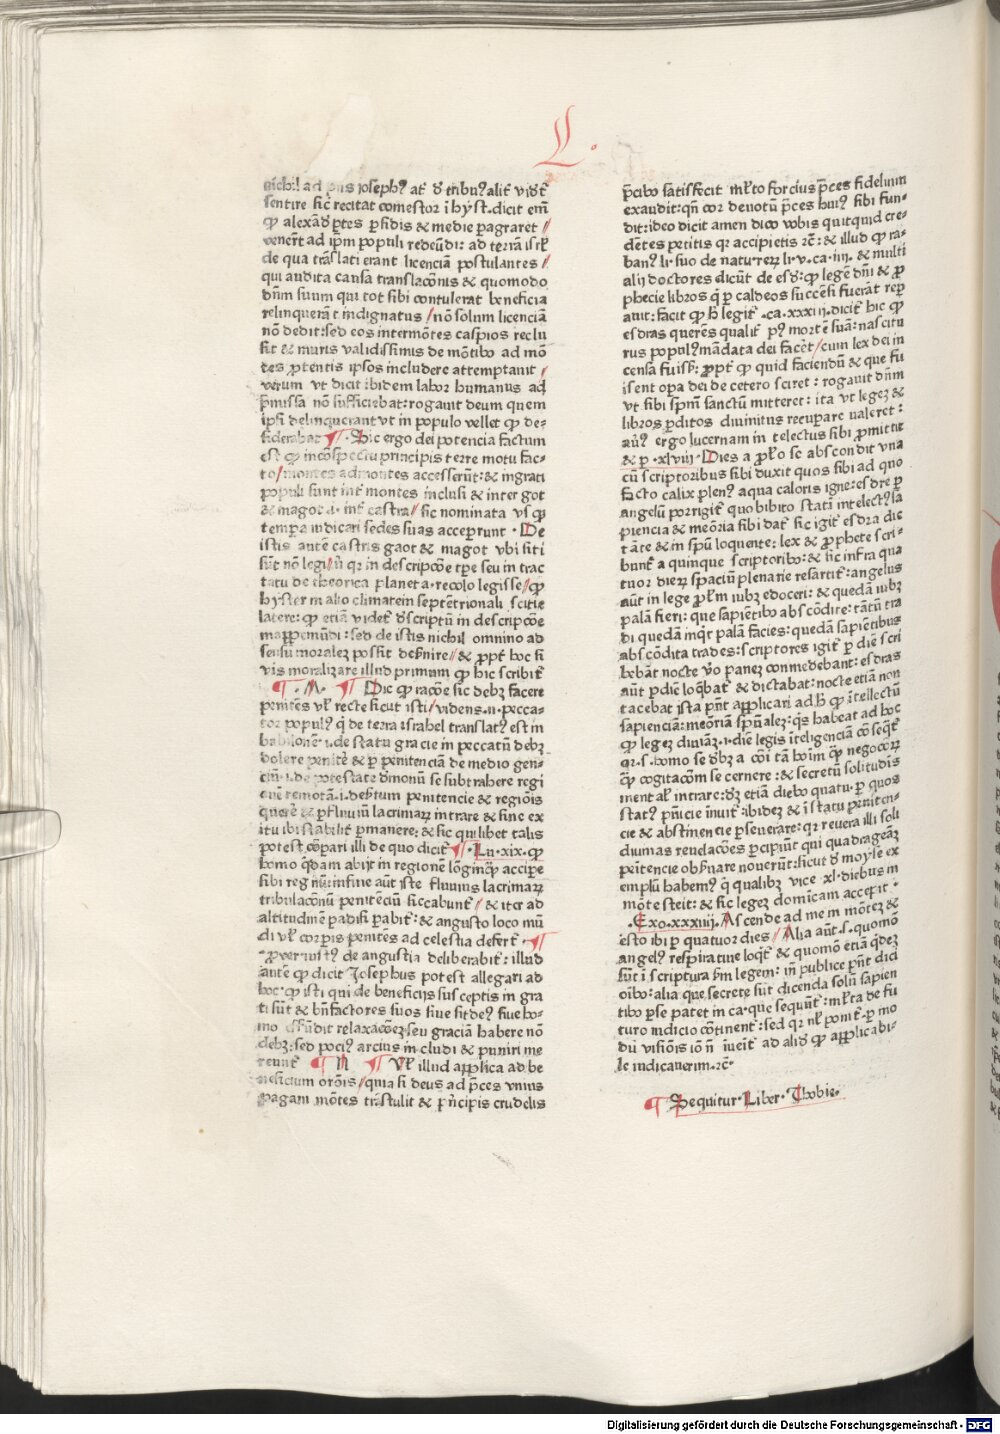 L.
nichil ad p̄ns ioseph⁹ at̄ d̄ tribu⁹ alit̄ vidt̄
sentire sic̄ recitat comestor ī hyst. dicit em̄
ꝙ alexād̄ ꝑtes ꝑsidis & medie pagraret //
venert̄ ad ip̄m populi redeūdi: ad terrā isrl̄
de qua trāslati erant licenciā postulantes //
qui audita causa translacōnis & quomodo
dn̄m suum qui tot sibi contulerat beneficia
relinquerāt indignatus / nō solum licenciā
nō dedit: sed eos inter mōtes caspios reclu
sit & muris validissimis de mōtibꝰ ad mō
tes ꝓtentis ipsos includere attemptauit //
verum vt dicit ibidem labor humanus ad
p̄missa nō sufficiebat: rogauit deum quem
ipsi delinquerant vt in populo vellet ꝙ de-
siderabat ¶ . Sic ergo dei potencia factum
est ꝙ in cōspectu principis terre motu fac-
to / montes ad montes accesserūt: & ingrati
populi sunt int̄ montes inclusi & inter got
& magot .i. int̄ castra // sic nominata vsꝙ
tempꝰa iudicari sedes suas acceperunt . De
istis autē castris gaot & magot vbi siti
sūt nō legi // n̄ qr in descripcōe tp̄e seu in trac
tatu de theorica planeta. recolo legisse // ꝙ
hyster in alio climate in septētrionali scitie
latere: ꝙ etiā videt̄ d̄scriptū in descripcōe
mappemūdi: sed de istis nichil omnino ad
sensū moralez possit definire // & ꝓpt̄ hoc si
vis moralizare illud primum ꝙ hic scribit̄
¶ . M . ¶ Dic ꝙ racōe sic debꝫ facere
penitēs vl̄ recte sicut isti / videns .n. pecca-
tor populꝰ q̄ de terra israhel translatꝰ est in
babilonē .i. de statu gracie in peccatū debꝫ
dolere penitē & ꝑ penitenciā de medio gen-
ciū .i. de potestate d̄monū se subtrahere regi
onē remotā .i. desertum penitencie & regiōis
querē & ꝑ fluuiū lacrimaꝝ intrare & sine ex
itu ibi stabilit̄ ꝑmanere: & sic quilibet talis
potest cōpari illi de quo dicit̄ ¶ . Lu . xix . ꝙ
homo q̄dam abijt in regionē lōginq̄ accipe
sibi regnū: in fine aūt iste fluuius lacrimaꝝ
tribulacōnū penitēciū siccabunt̄ // & iter ad
altitudinē padisi ꝑabit̄: & angusto loco mū
di vl̄ corꝑis penitēs ad celestia defert̄ . ¶
. Prouer. iustꝰ de angustia deliberabit̄: illud
autē ꝙ dicit Josephus potest allegari ad
hoc: ꝙ isti qui de beneficijs susceptis in gra
ti sūt & bn̄factores suos siue sit deꝰ siue ho-
mo offūdit relaxacōez seu graciā habere nō
debꝫ: sed pociꝰ arcius includi & puniri me
reunt̄ ¶ N ¶ Vl̄ illud applica ad be
neficium orōnis / quia si deus ad p̄ces vnius
pagani mōtes trāstulit & pn̄cipis crudelis
p̄cibꝰ satisfecit ml̄to forcius p̄ces fidelium
exaudit: qn̄ cor deuotū p̄ces huiꝰ sibi fun-
dit: ideo dicit amen dico vobis quitquid cre-
dētes petitis qr accipietis ꝛc̄: & illud ꝙ ra-
banꝰ li. suo de natu. reꝝ li. v. ca. iiij. & multi
alij doctores dicūt de esd̄: ꝙ legē dn̄i & ꝓ
phecie libros q̄ ꝑ caldeos succensi fuerāt reꝑ
auit: facit ꝙ h̄ legit̄ . ca. xxxiij. dicit̄ hic ꝙ
esdras querēs qualit̄ pꝰ mortē suā: nascitu
rus populꝰ mādata dei facēt / cum lex dei in
censa fuisꝫ: ꝓpt̄ ꝙ quid faciendū & que fu
issent opa dei de cetero sciret: rogauit dn̄m
vt sibi spm̄ sanctū mitteret: ita vt legez &
libros ꝑditos diuinitus recupare ualeret:
aūꝰ ergo lucernam in telectus sibi ꝓmittit
& ꝑ . xlviij . Dies a ꝓlo se abscondit vna
cū scriptoribus sibi duxit quos sibi ad quo
facto calix plenꝰ aqua caloris igne: esdre ꝑ
angelū poꝛrigit̄ quo bibito statī intelectꝰ sa
piencia & meōria sibi dat̄ sic igit̄ esdra die
tāte & in spū loquente: lex & ꝓphete scri-
bunt̄ a quinque scriptoribꝰ: & sic infra qua
tuor dieꝝ spaciū plenarie resartit̄: angelus
aūt in lege ꝓlm̄ iubꝫ edoceri: & quedā iubꝫ
palā fieri: que sapiētibꝰ abscōdire: tātū tra
di quedā inqr̄ palā facies: quedā sapientibus
abscōdita trades: scriptores igit̄ ꝑ diē scri
bebāt nocte v̄o panez conmedebant: esdras
aūt ꝑ diē loq̄bat̄ & dictabat: nocte etiā non
tacebat ista pn̄t applicari ad h̄ ꝙ ītellectū
sapienciā: meōriā spūalez: qͥs habeat ad hoc
ꝙ legez diuinā .i. diē legis īteligenciā cōseqt̄
qr .s. homo se dꝫ a cōi tā hoīm ꝙ̄ negocioꝝ
ꝙ̄ cogitacōm secernere: & secretū solitudīs
mental̄ intrare: dꝫ etiā diebꝰ quatuor ꝑ quos
statꝰ pn̄icie inuit̄ ibidez & ī statu peniten-
cie & abstinencie ꝑseuerare: qr reuera illi soli
diuinas reuelacōes ꝑcipiūt qui quadragenā
penitencie obseruare nouerūt: sicut d̄ moyse ex
emplū habemꝰ q̄ qualibꝫ vice xl. diebus in
mōte steit: & sic legez domīcam accepit .
. Exo. xxxiiij. Ascende ad me in mōtez &
esto ibi ꝑ quatuor dies // Alia aūt .s. quomō
angelꝰ respiratiue loqt̄ & quomō etiā q̄dez
sūt ī scriptura s̄m legem: in publice pn̄t dici
oībꝰ: alia que secrete sūt dicenda solū sapien
tibꝰ ꝑse patet in ca. que sequūt̄: ml̄ta de fu
turo iudicio cōtinent̄: sed qr nl̄ ponit̄ ꝑ mo
dū visiōis iō n̄ īueīt ad aliꝙ ꝙ applicabi-
le iudicauerim. ꝛc̄.
¶ Sequitur . Liber . Thobie .
Digitalisierung gefördert durch die Deutsche Forschungsgemeinschaft - DFG